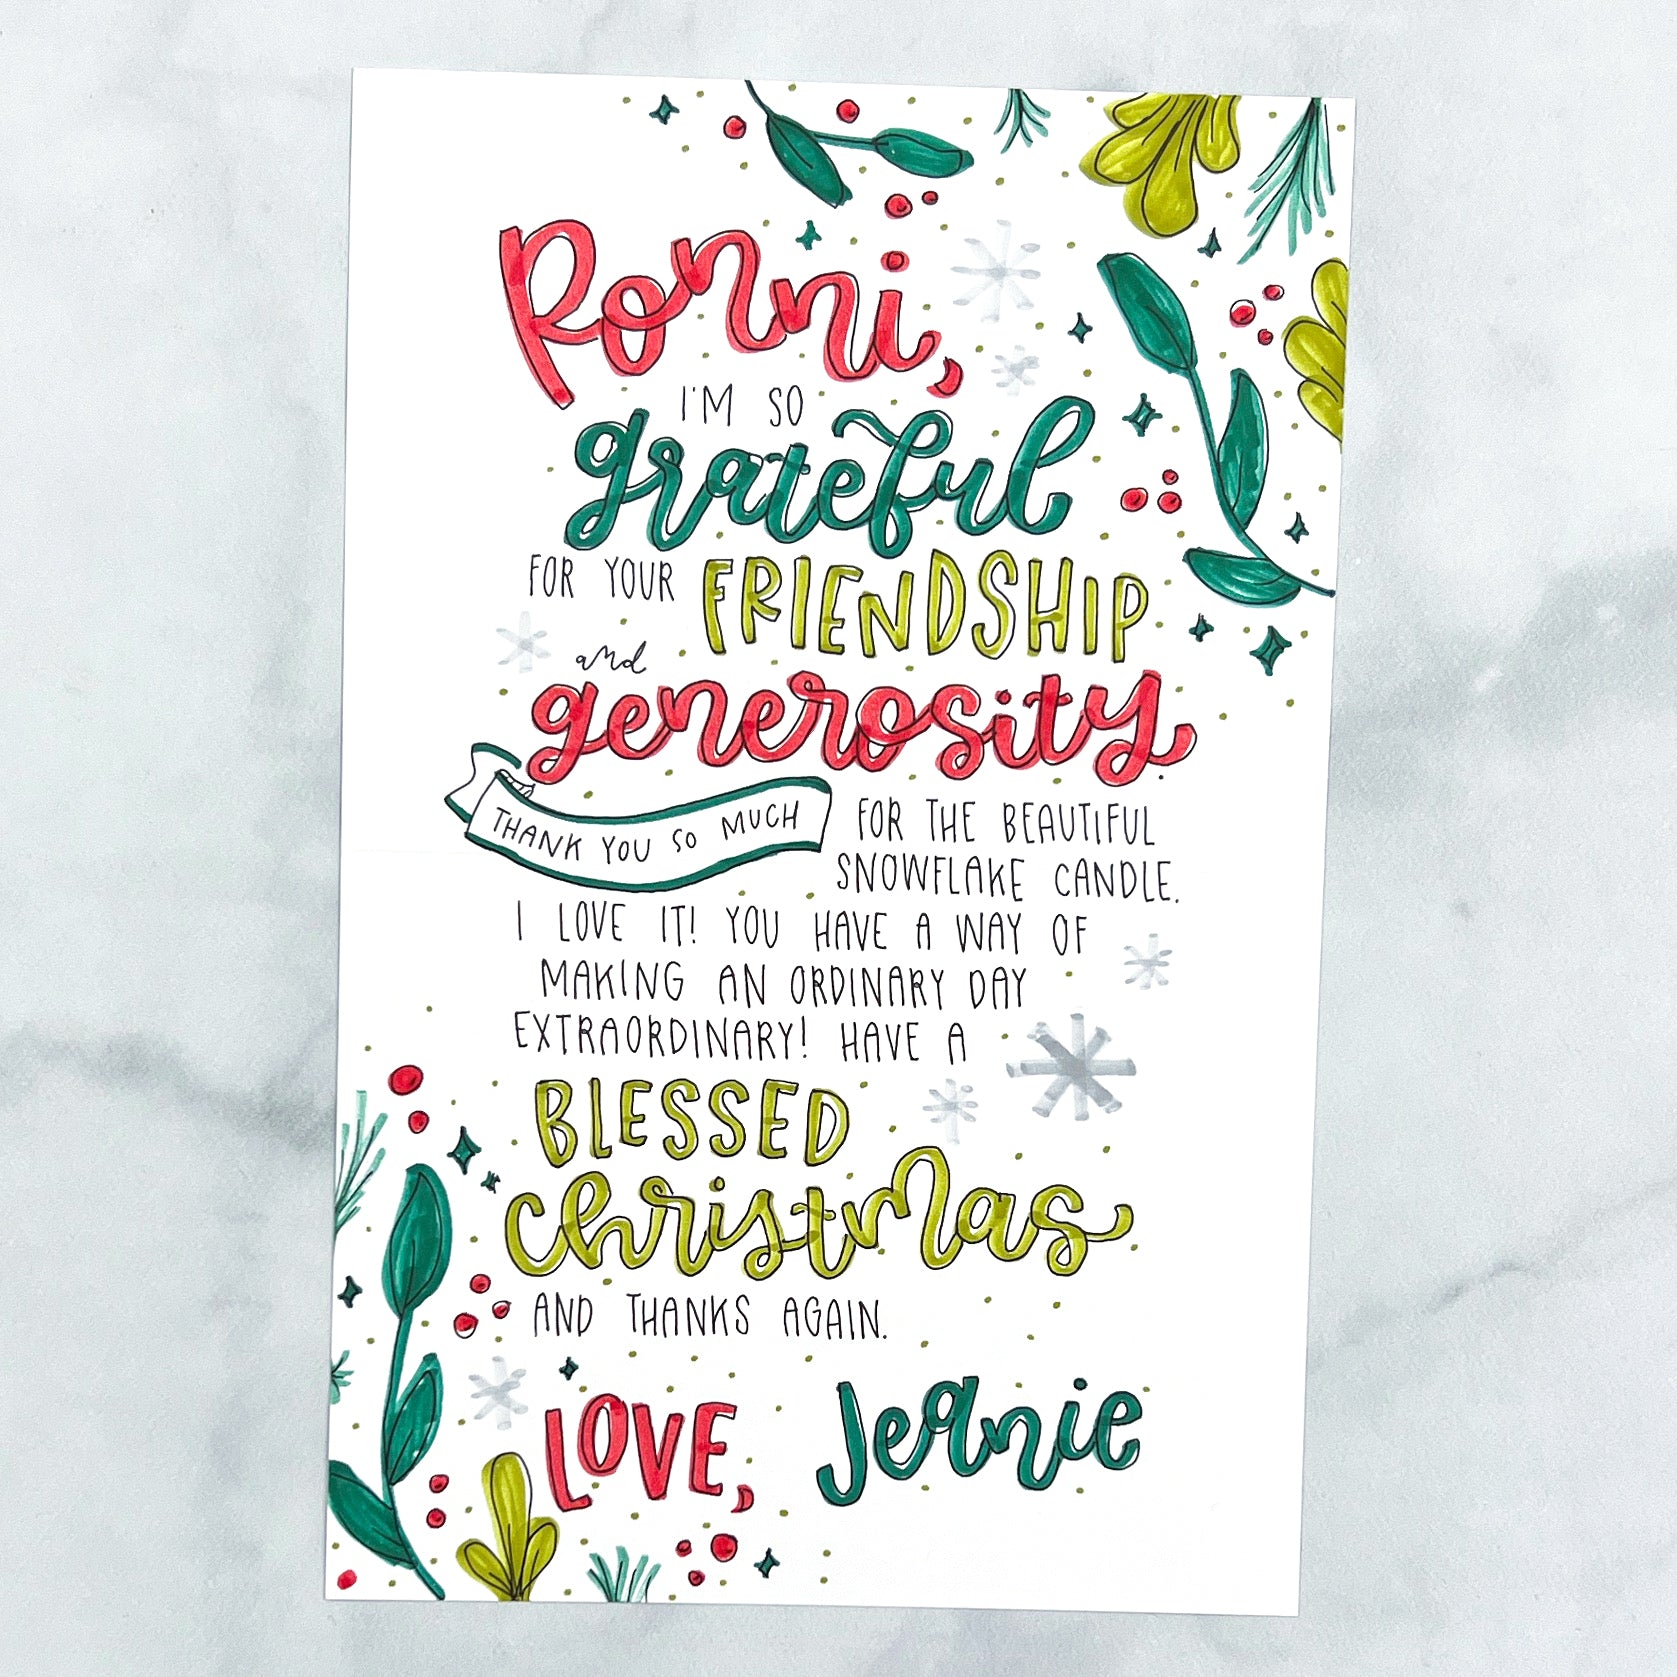 Ronni,
I'M SO
grateful
FOR YOUR FRIENDSHIP
and
generosity
THANK YOU SO MUCH FOR THE BEAUTIFUL
SNOWFLAKE CANDLE.
I LOVE IT! YOU HAVE A WAY OF
MAKING AN ORDINARY DAY
EXTRAORDINARY! HAVE A
BLESSED
christmas
AND THANKS AGAIN.
LOVE, Jeanie